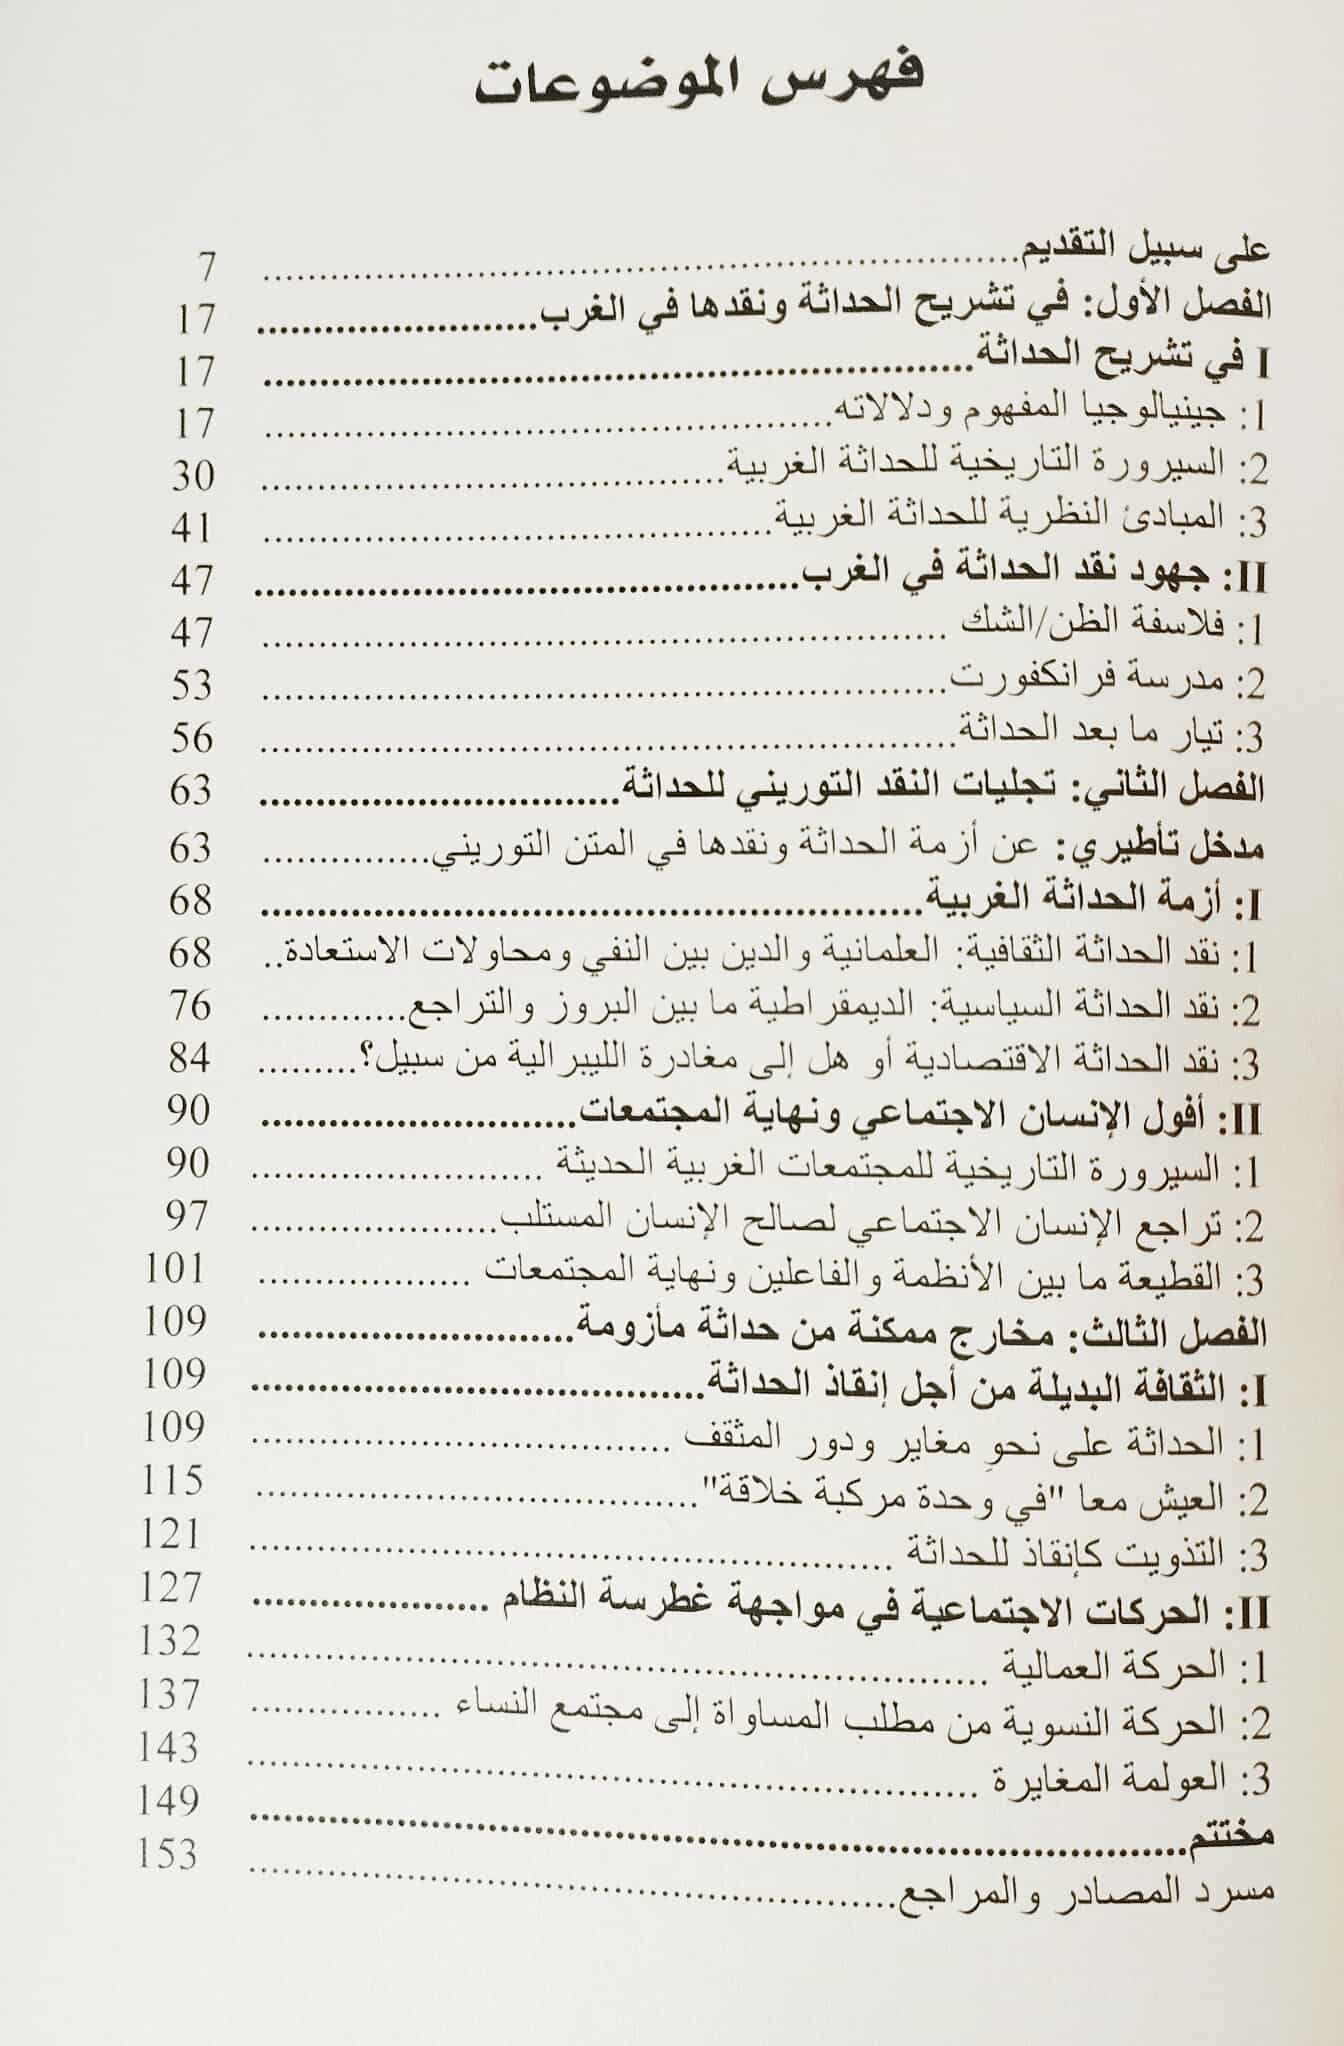 فهرس الموضوعات
على سبيل التقديم.................................................................. 7
الفصل الأول: في تشريح الحداثة ونقدها في الغرب......................... 17
I في تشريح الحداثة............................................................ 17
1: جينيالوجيا المفهوم ودلالاته................................................ 17
2: السيرورة التاريخية للحداثة الغربية........................................ 30
3: المبادئ النظرية للحداثة الغربية............................................ 41
II: جهود نقد الحداثة في الغرب................................................ 47
1: فلاسفة الظن/الشك ........................................................... 47
2: مدرسة فرانكفورت........................................................... 53
3: تيار ما بعد الحداثة............................................................ 56
الفصل الثاني: تجليات النقد التوريني للحداثة................................ 63
مدخل تأطيري: عن أزمة الحداثة ونقدها في المتن التوريني............... 63
I: أزمة الحداثة الغربية........................................................ 68
1: نقد الحداثة الثقافية: العلمانية والدين بين النفي ومحاولات الاستعادة.. 68
2: نقد الحداثة السياسية: الديمقراطية ما بين البروز والتراجع............. 76
3: نقد الحداثة الاقتصادية أو هل إلى مغادرة الليبرالية من سبيل؟......... 84
II: أفول الإنسان الاجتماعي ونهاية المجتمعات............................ 90
1: السيرورة التاريخية للمجتمعات الغربية الحديثة .......................... 90
2: تراجع الإنسان الاجتماعي لصالح الإنسان المستلب...................... 97
3: القطيعة ما بين الأنظمة والفاعلين ونهاية المجتمعات ................... 101
الفصل الثالث: مخارج ممكنة من حداثة مأزومة............................ 109
I: الثقافة البديلة من أجل إنقاذ الحداثة........................................ 109
1: الحداثة على نحوٍ مغاير ودور المثقف ..................................... 109
2: العيش معا "في وحدة مركبة خلاقة"....................................... 115
3: التذويت كإنقاذ للحداثة ........................................................ 121
II: الحركات الاجتماعية في مواجهة غطرسة النظام ..................... 127
1: الحركة العمالية ................................................................ 132
2: الحركة النسوية من مطلب المساواة إلى مجتمع النساء ................. 137
3: العولمة المغايرة ................................................................ 143
مختتم................................................................................. 149
مسرد المصادر والمراجع......................................................... 153